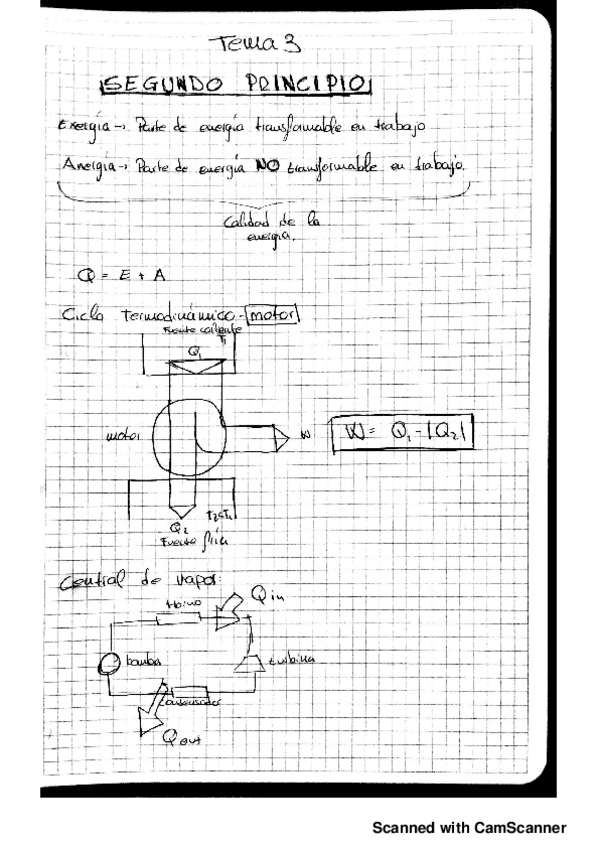 Tema 3
SEGUNDO PRINCIPIO
Exergía → Parte de energía transformable en trabajo
Anergía → Parte de energía NO transformable en trabajo.
Calidad de la
energía.
Q = E + A
Ciclo termodinámico - motor
Fuente caliente
T1
Q1
motor
W
W = Q1 - |Q2|
T2<T1
Q2
Fuente fría
Central de vapor:
Q in
bomba
turbina
condensador
Q out
Scanned with CamScanner